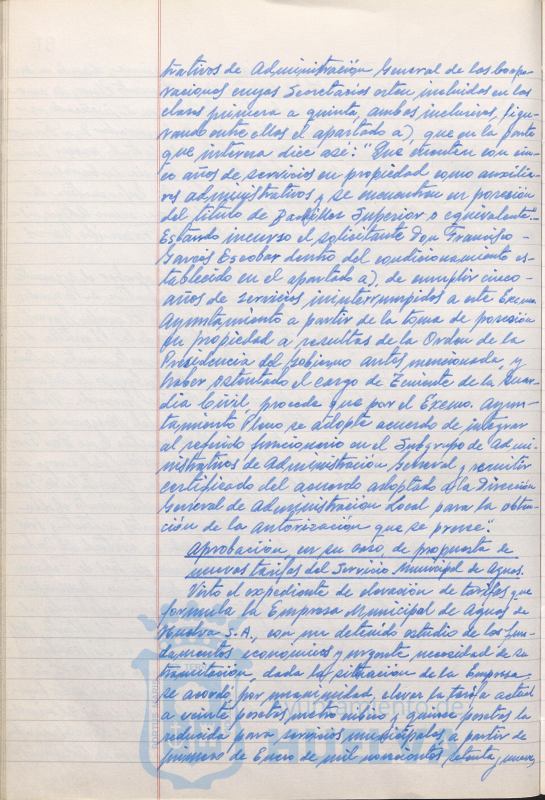 trativos de Administración General de las Corpo-
raciones cuyas Secretarías estén incluidas en las
clases primera a quinta, ambas inclusives, figu-
rando entre ellos el apartado a) que en la parte
que interesa dice así: "Que cuenten con cin-
co años de servicios en propiedad como auxilia-
res administrativos y se encuentran en posesión
del título de Bachiller Superior o equivalente".-
Estando incurso el solicitante Don Francisco -
Garcés Escobar dentro del condicionamiento es-
tablecido en el apartado a), de cumplir cinco-
años de servicios ininterrumpidos a este Excmo.
Ayuntamiento a partir de la toma de posesión
en propiedad a resultas de la Orden de la
Presidencia del Gobierno antes mencionada, y
haber ostentado el cargo de Teniente de la Guar-
dia Civil, procede que por el Excmo. Ayun-
tamiento Pleno se adopte acuerdo de integrar
al referido funcionario en el Subgrupo de Admi-
nistrativos de Administración General y remitir
certificado del acuerdo adoptado a la Dirección
General de Administración Local para la obten-
ción de la autorización que se prevee".
Aprobación, en su caso, de propuesta de
nuevas tarifas del Servicio Municipal de Aguas.
Visto el expediente de elevación de tarifas que
formula la Empresa Municipal de Aguas de
Huelva S.A., con un detenido estudio de los fun-
damentos económicos y urgente necesidad de su
tramitación, dada la situación de la Empresa,
se acordó, por unanimidad, elevar la tarifa actual
a veinte pesetas metro cúbico y quince pesetas la
reducida para servicios municipales, a partir de
primero de Enero de mil novecientos setenta y nueve,
Ayuntamiento de
HUELVA